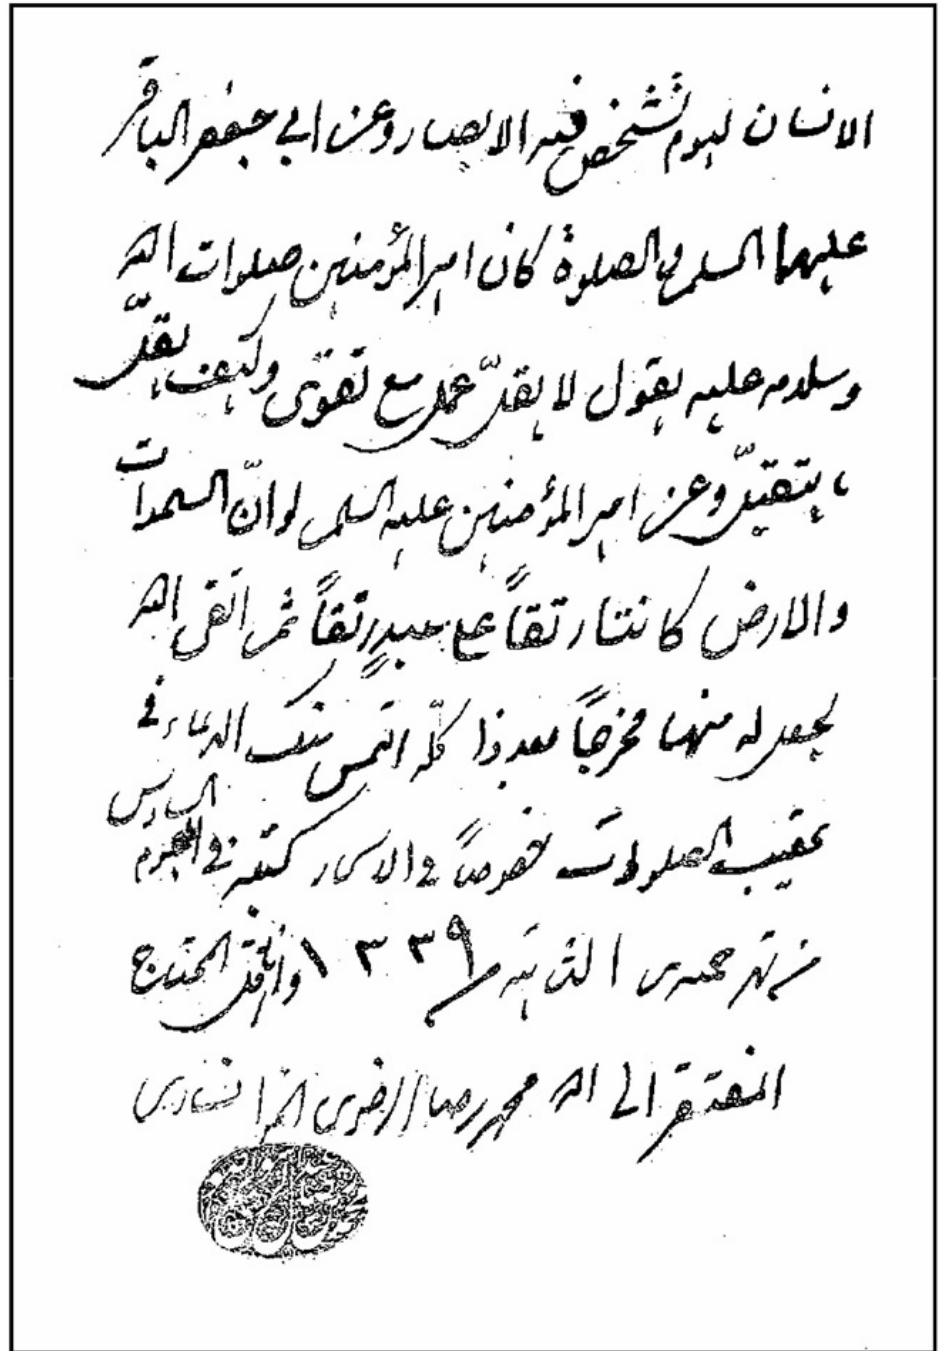 الانسان ليوم تشخص فيه الابصار وعن ابي جعفر الباقر
عليهما السلم والصلوة كان امير المؤمنين صلوات الله
وسلامه عليه يقول لا يقلّ عمل مع تقوى وكيف يقلّ
ما يتقبّل وعن امير المؤمنين عليه السلم لو انّ السموات
والارض كانتا رتقاً على عبدٍ رتقاً ثم اتقى الله
لجعل له منها مخرجاً بعد ذا كلّه التمس منك الدعاء في
عقيب الصلوات خصوصاً في الاسحار كتبته في اليوم السادس
من شهر جمادى الثانيه ١٣٣٩ وانا الاقل المحتاج
المفتقر الى الله محمد رضا الرضوى الخوانسارى